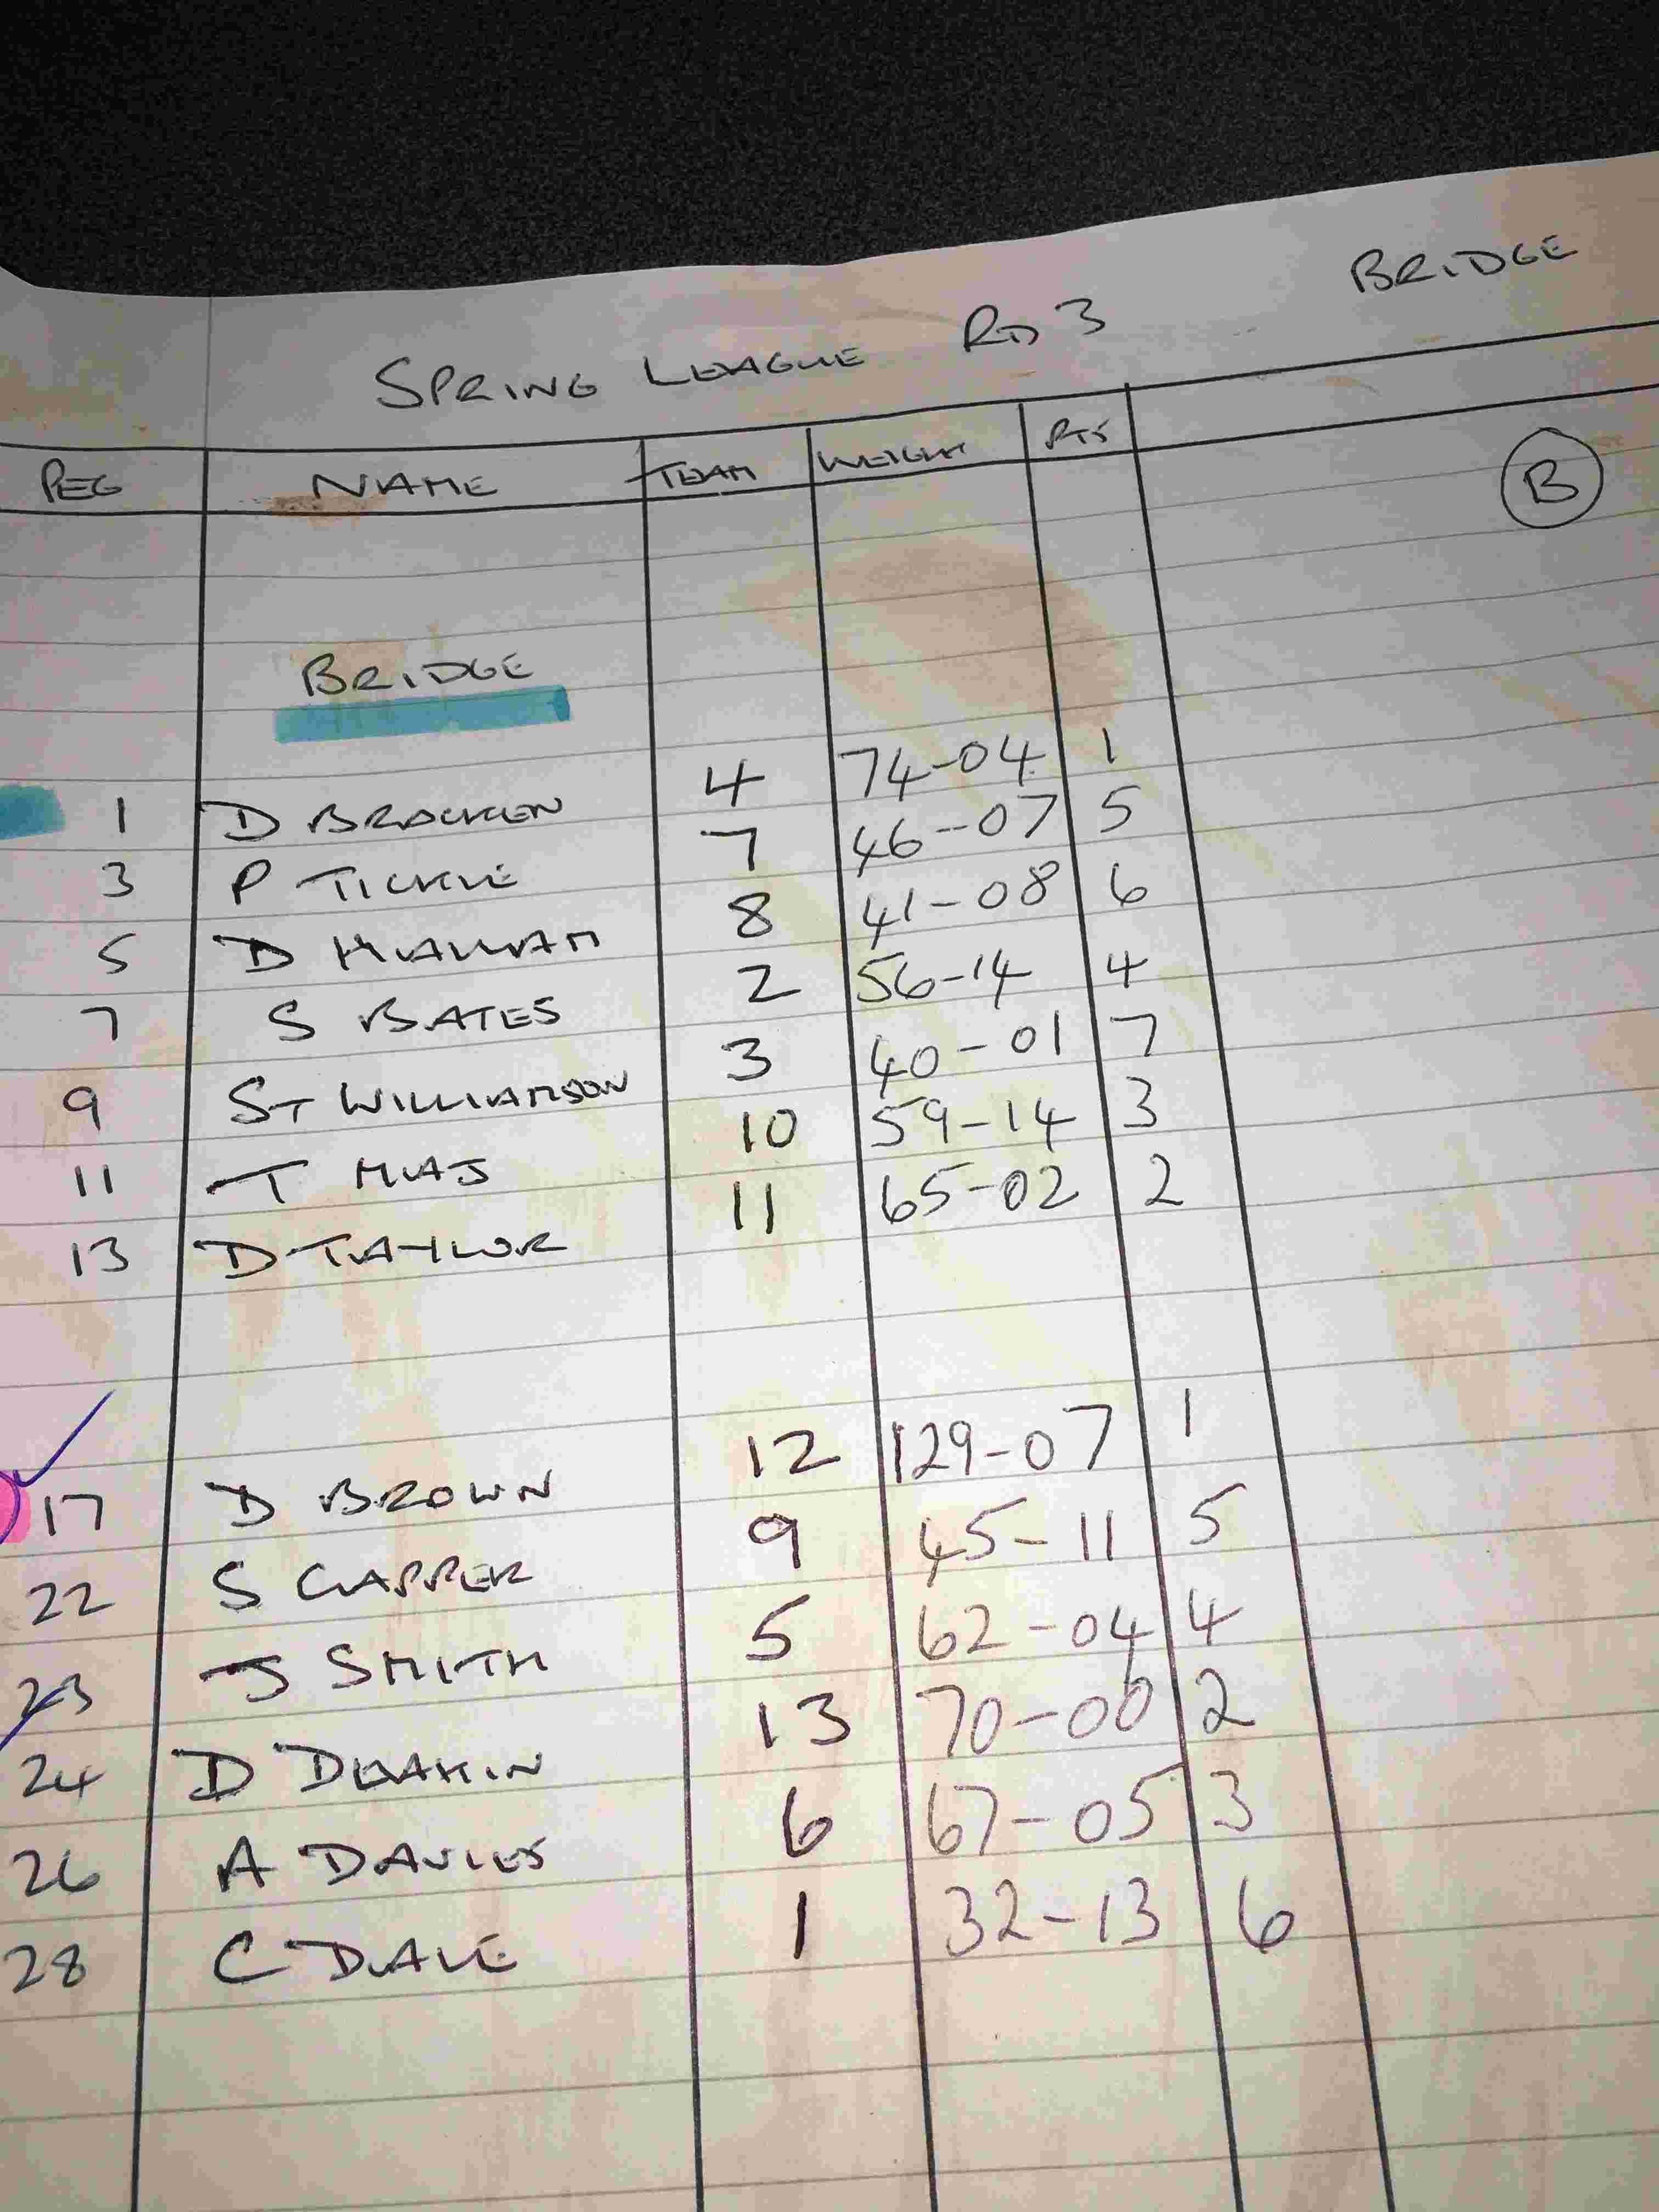 BRIDGE
SPRING LEAGUE RD 3
PEG NAME TEAM WEIGHT PTS
B
BRIDGE
1 D BRACKEN 4 74-04 1
3 P TICKLE 7 46-07 5
5 D HALLAM 8 41-08 6
7 S BATES 2 56-14 4
9 ST WILLIAMSON 3 40-01 7
11 T 10 59-14 3
13 D TAYLOR 11 65-02 2
17 D BROWN 12 129-07 1
22 S CAPPER 9 45-11 5
23 J SMITH 5 62-04 4
24 D DEAKIN 13 70-00 2
26 A DAVIES 6 67-05 3
28 C DALE 1 32-13 6